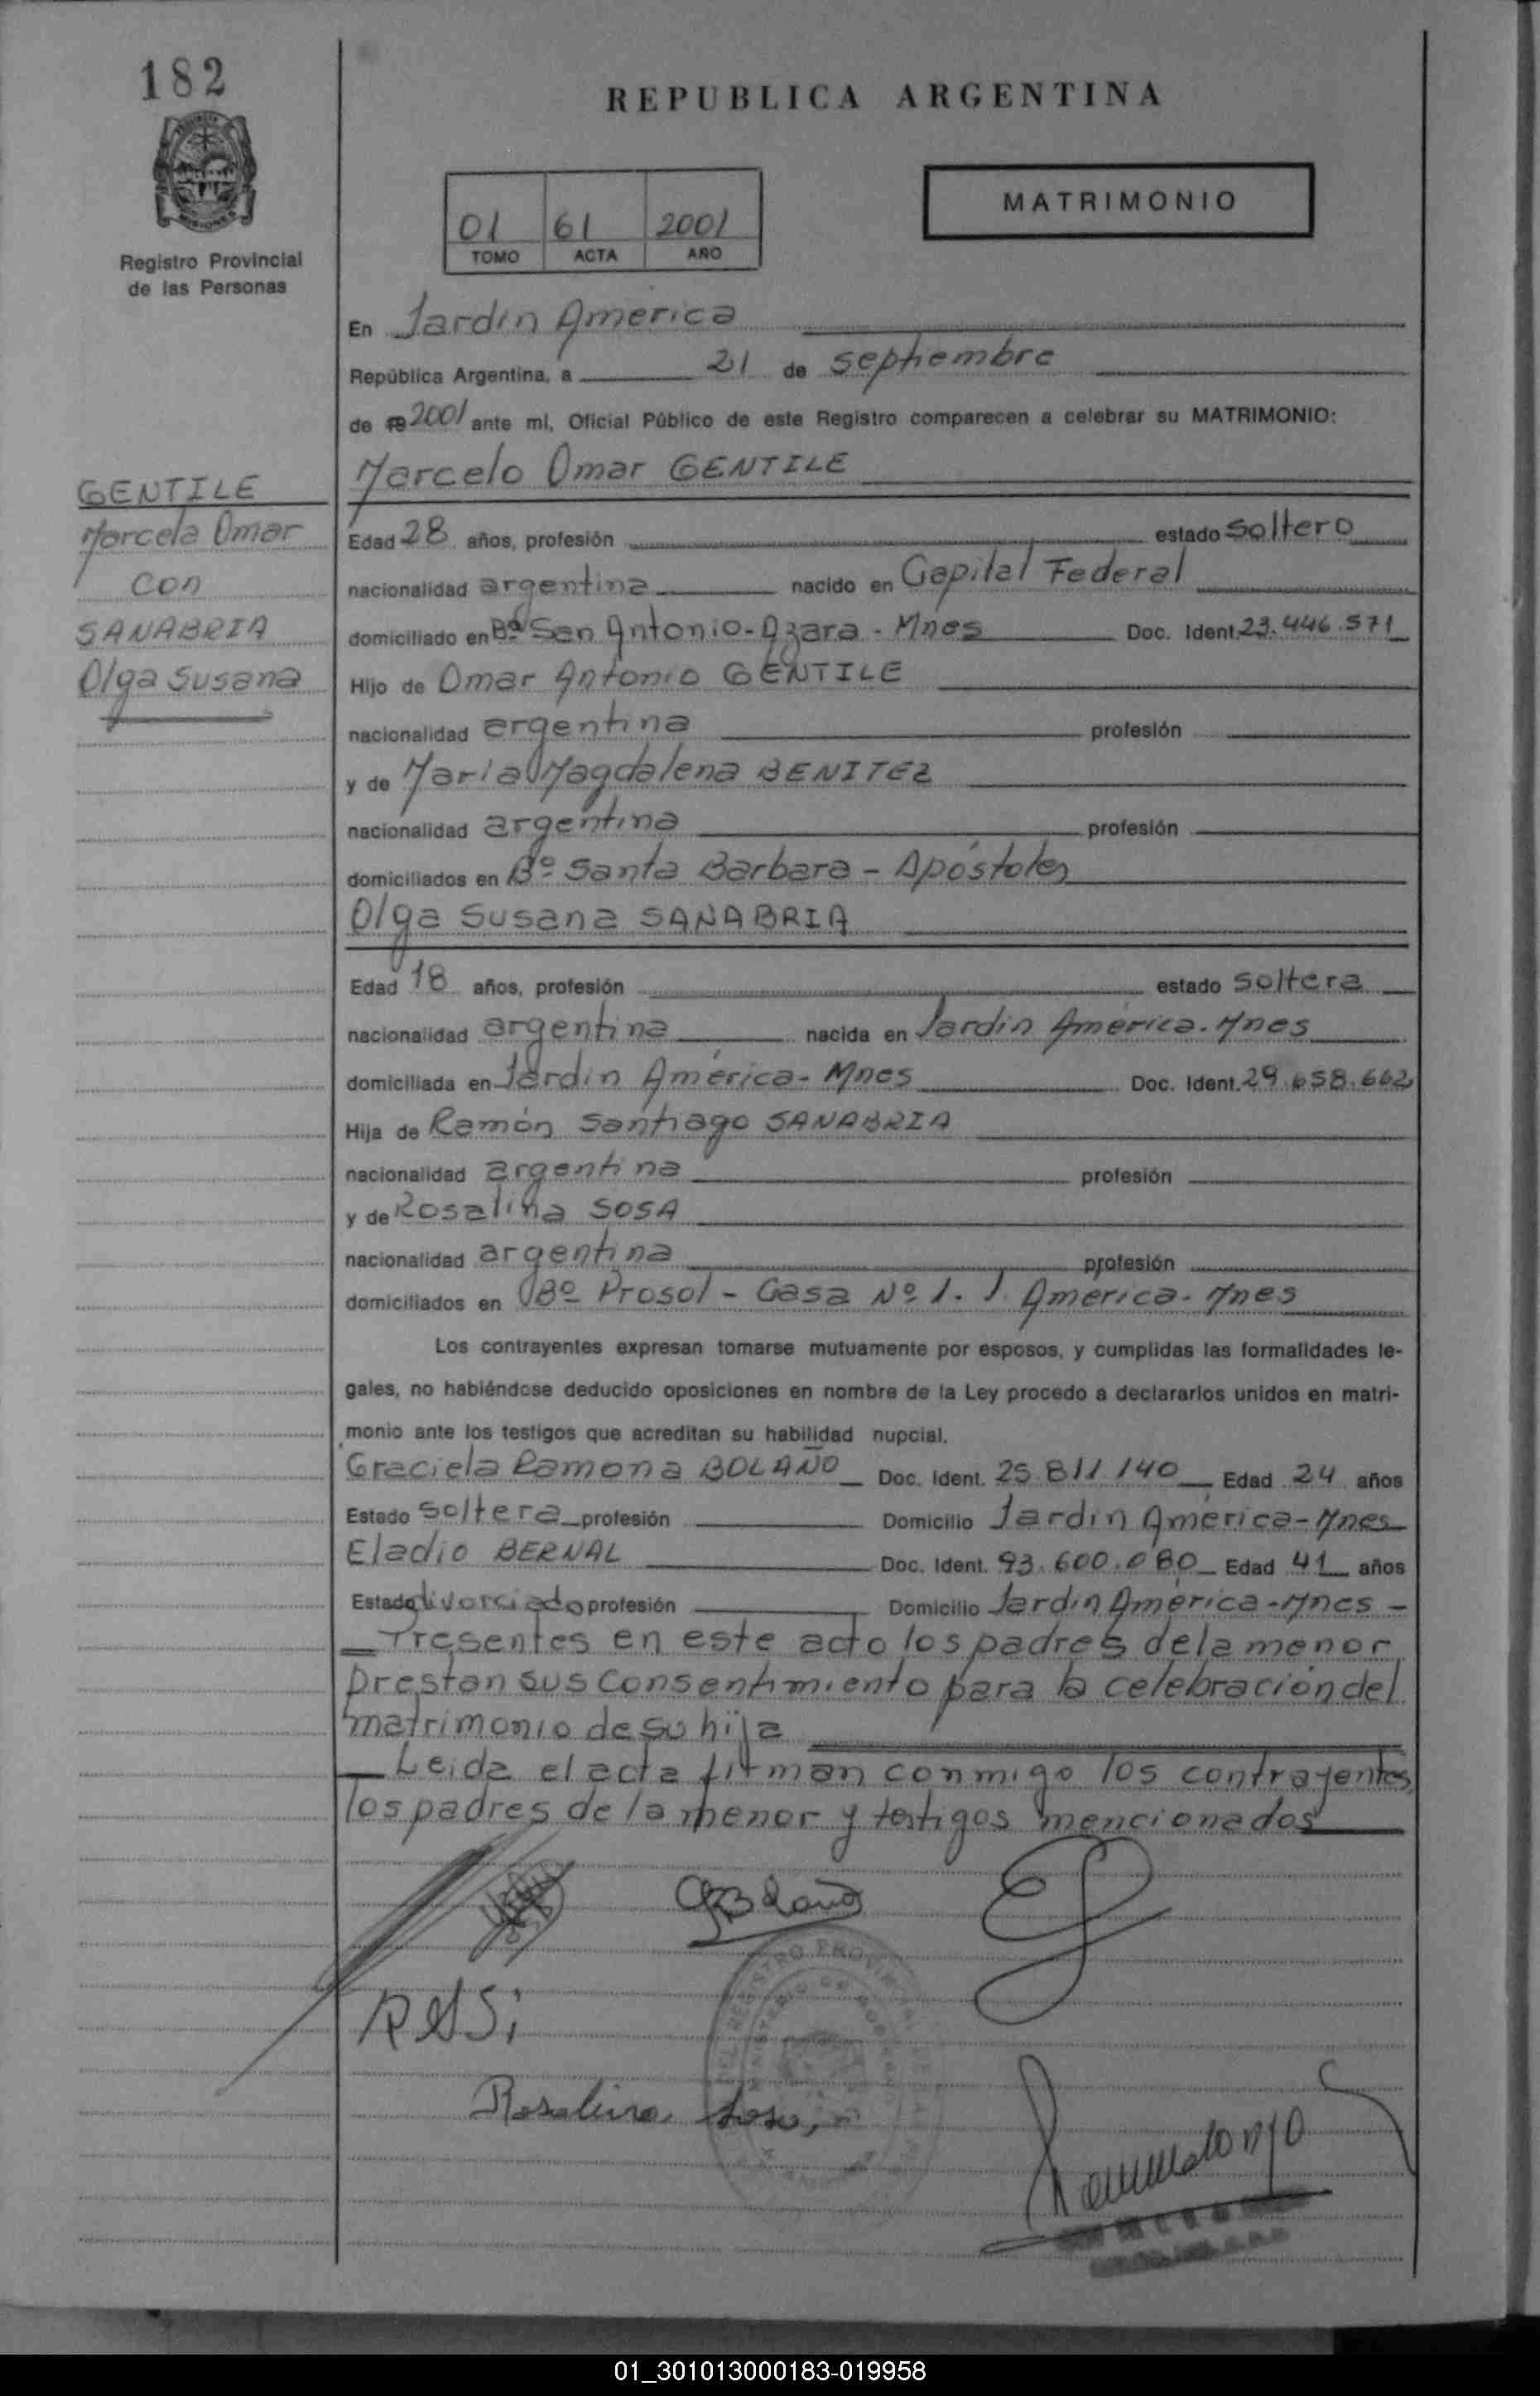 182
REPUBLICA ARGENTINA
MATRIMONIO
01 61 2001
TOMO ACTA AÑO
Registro Provincial
de las Personas
En Jardin America
República Argentina, a 21 de septiembre
de 2001 ante mi, Oficial Público de este Registro comparecen a celebrar su MATRIMONIO:
Marcelo Omar GENTILE
GENTILE
Marcelo Omar
con
SANABRIA
Olga Susana
Edad 28 años, profesión estado soltero
nacionalidad argentina nacido en Capital Federal
domiciliado en Bº San Antonio - Azara - Mnes Doc. Ident. 23.446.571
Hijo de Omar Antonio GENTILE
nacionalidad argentina profesión
y de Maria Magdalena BENITEZ
nacionalidad argentina profesión
domiciliados en Bº Santa Barbara - Apóstoles
Olga Susana SANABRIA
Edad 18 años, profesión estado soltera
nacionalidad argentina nacida en Jardin América. Mnes
domiciliada en Jardin América - Mnes Doc. Ident. 29.658.662
Hija de Ramón Santiago SANABRIA
nacionalidad argentina profesión
y de Rosalina SOSA
nacionalidad argentina profesión
domiciliados en Bº Prosol - Casa Nº 1. J. America - Mnes
Los contrayentes expresan tomarse mutuamente por esposos, y cumplidas las formalidades le-
gales, no habiéndose deducido oposiciones en nombre de la Ley procedo a declararlos unidos en matri-
monio ante los testigos que acreditan su habilidad nupcial.
Graciela Ramona BOLAÑO Doc. Ident. 25.811.140 Edad 24 años
Estado soltera profesión Domicilio Jardin América - Mnes
Eladio BERNAL Doc. Ident. 93.600.080 Edad 41 años
Estado divorciado profesión Domicilio Jardin América - Mnes -
Presentes en este acto los padres de la menor
prestan sus consentimiento para la celebración del
matrimonio de su hija
Leida el acta firman conmigo los contrayentes,
los padres de la menor y testigos mencionados
Rosalina Sosa
01_301013000183-019958